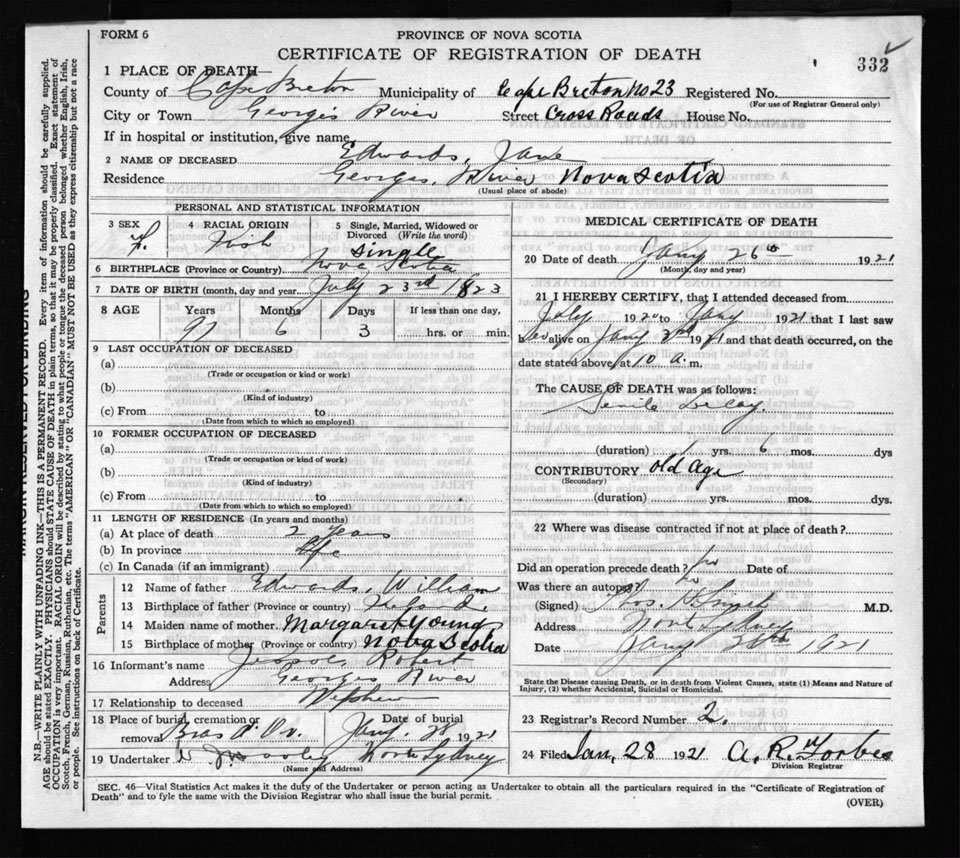 FORM 6
PROVINCE OF NOVA SCOTIA
CERTIFICATE OF REGISTRATION OF DEATH
332
1 PLACE OF DEATH—
County of Cape Breton Municipality of Cape Breton No 23 Registered No.
(For use of Registrar General only)
City or Town Georges River Street Cross Roads House No.
If in hospital or institution, give name
2 NAME OF DECEASED Edwards, Jane
Residence Georges River Nova Scotia
(Usual place of abode)
PERSONAL AND STATISTICAL INFORMATION
3 SEX
F.
4 RACIAL ORIGIN
Irish
5 Single, Married, Widowed or Divorced (Write the word)
Single
6 BIRTHPLACE (Province or Country) Nova Scotia
7 DATE OF BIRTH (month, day and year) July 23rd 1823
8 AGE Years Months Days If less than one day,
97 6 3 hrs. or min.
9 LAST OCCUPATION OF DECEASED
(a)
(Trade or occupation or kind or work)
(b)
(Kind of industry)
(c) From to
(Date from which to which so employed)
10 FORMER OCCUPATION OF DECEASED
(a)
(Trade or occupation or kind of work)
(b)
(Kind of industry)
(c) From to
(Date from which to which so employed)
11 LENGTH OF RESIDENCE (In years and months)
(a) At place of death 2 years
(b) In province life
(c) In Canada (if an immigrant)
Parents
12 Name of father Edwards, William
13 Birthplace of father (Province or country) Ireland.
14 Maiden name of mother Margaret Young
15 Birthplace of mother (Province or country) Nova Scotia
16 Informant's name Robert
Address Georges River
17 Relationship to deceased Nephew
18 Place of burial, cremation or removal Bras d'Or Date of burial Jany. 28, 1921
19 Undertaker North Sydney
(Name and Address)
MEDICAL CERTIFICATE OF DEATH
20 Date of death Jany 26th 1921
(Month, day and year)
21 I HEREBY CERTIFY, that I attended deceased from
July 1920 to Jany 1921 that I last saw
her alive on Jany 2nd 1921 and that death occurred, on the
date stated above, at 10 a. m.
The CAUSE OF DEATH was as follows:
Senile Decay.
(duration) yrs. 6 mos. dys
CONTRIBUTORY Old Age
(Secondary)
(duration) yrs. mos. dys.
22 Where was disease contracted if not at place of death?
Did an operation precede death? no Date of
Was there an autopsy? no
(Signed) Thos. M.D.
Address North Sydney
Date Jany 1921
State the Disease causing Death, or in death from Violent Causes, state (1) Means and Nature of Injury, (2) whether Accidental, Suicidal or Homicidal.
23 Registrar's Record Number 2.
24 Filed Jan, 28 1921 A. R. Forbes
Division Registrar
SEC. 46—Vital Statistics Act makes it the duty of the Undertaker or person acting as Undertaker to obtain all the particulars required in the "Certificate of Registration of
Death" and to fyle the same with the Division Registrar who shall issue the burial permit.
(OVER)
MARGIN RESERVED FOR BINDING
N.B.—WRITE PLAINLY WITH UNFADING INK—THIS IS A PERMANENT RECORD. Every item of information should be carefully supplied.
AGE should be stated EXACTLY. PHYSICIANS should STATE CAUSE OF DEATH in plain terms, so that it may be properly classified. Exact statement of
OCCUPATION is very important. RACIAL ORIGIN will be described by stating to what people or tongue the deceased person belonged whether English, Irish,
Scotch, French, German, Russian, Ruthenian, etc. The terms "AMERICAN" OR "CANADIAN" MUST NOT BE USED as they express citizenship but not a race
or people. See instructions on back of Certificate.